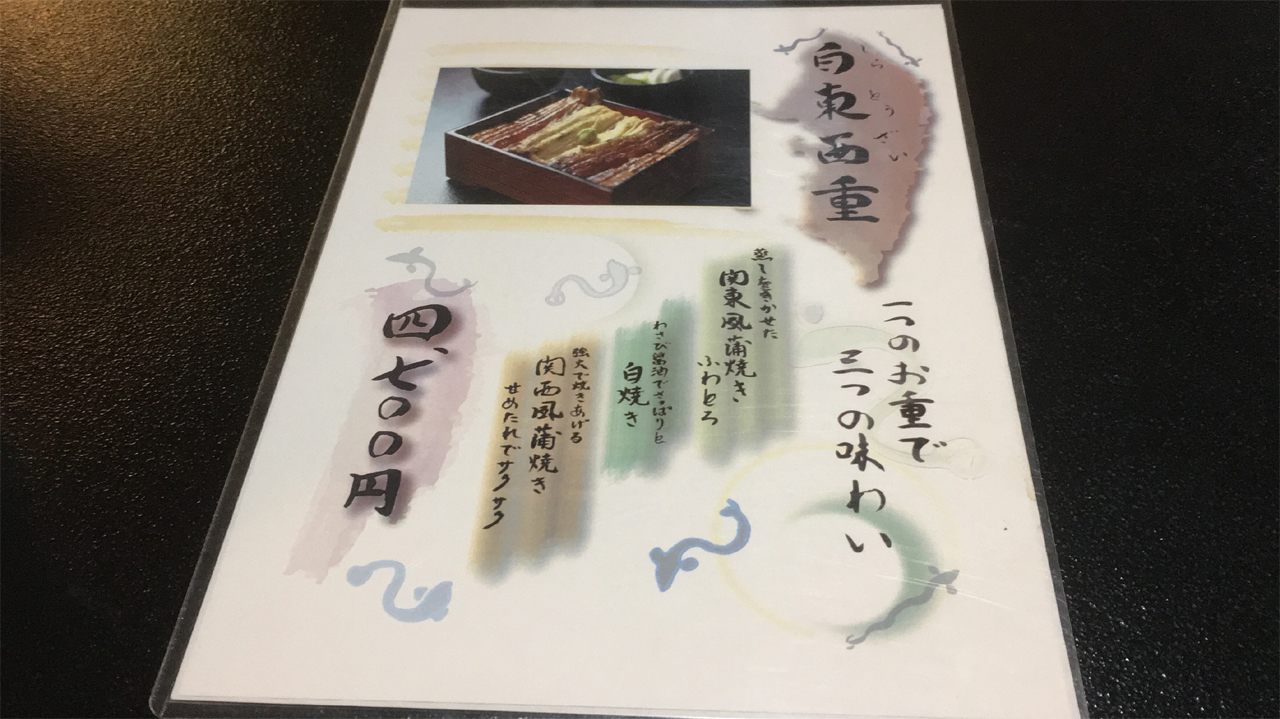 白東西重
しらとうざい
一つのお重で
三つの味わい
蒸しをきかせた
関東風蒲焼き
ふわとろ
わさび醤油でさっぱりと
白焼き
強火で焼きあげる
関西風蒲焼き
せめたれでサクサク
四、七〇〇円